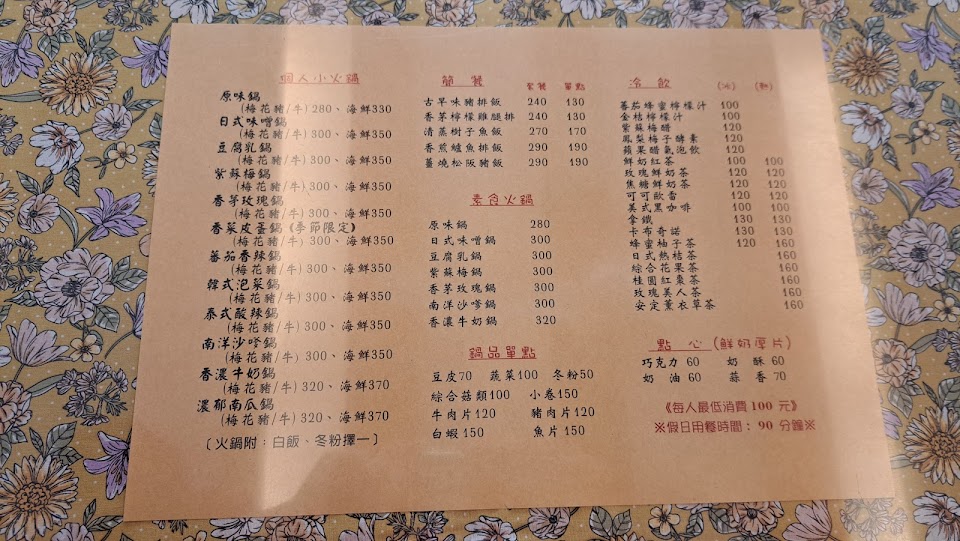 個人小火鍋
原味鍋
(梅花豬/牛) 280、海鮮330
日式味噌鍋
(梅花豬/牛) 300、海鮮350
豆腐乳鍋
(梅花豬/牛) 300、海鮮350
紫蘇梅鍋
(梅花豬/牛) 300、海鮮350
香茅玫瑰鍋
(梅花豬/牛) 300、海鮮350
香菜皮蛋鍋《季節限定》
(梅花豬/牛) 300、海鮮350
蕃茄香辣鍋
(梅花豬/牛) 300、海鮮350
韓式泡菜鍋
(梅花豬/牛) 300、海鮮350
泰式酸辣鍋
(梅花豬/牛) 300、海鮮350
南洋沙嗲鍋
(梅花豬/牛) 300、海鮮350
香濃牛奶鍋
(梅花豬/牛) 320、海鮮370
濃郁南瓜鍋
(梅花豬/牛) 320、海鮮370
〔火鍋附：白飯、冬粉擇一〕
簡餐 套餐 單點
古早味豬排飯 240 130
香茅檸檬雞腿排 240 130
清蒸樹子魚飯 270 170
香煎鱸魚排飯 290 190
薑燒松阪豬飯 290 190
素食火鍋
原味鍋 280
日式味噌鍋 300
豆腐乳鍋 300
紫蘇梅鍋 300
香茅玫瑰鍋 300
南洋沙嗲鍋 300
香濃牛奶鍋 320
鍋品單點
豆皮70 蔬菜100 冬粉50
綜合菇類100 小卷150
牛肉片120 豬肉片120
白蝦150 魚片150
冷飲 (冰) (熱)
蕃茄蜂蜜檸檬汁 100
金桔檸檬汁 100
紫蘇梅醋 120
鳳梨梅子酵素 120
蘋果醋氣泡飲 120
鮮奶紅茶 100 100
玫瑰鮮奶茶 120 120
焦糖鮮奶茶 120 120
可可歐蕾 120 120
美式黑咖啡 100 100
拿鐵 130 130
卡布奇諾 130 130
蜂蜜柚子茶 120 160
日式熱桔茶 160
綜合花果茶 160
桂圓紅棗茶 160
玫瑰美人茶 160
安定薰衣草茶 160
點心 (鮮奶厚片)
巧克力 60 奶酥 60
奶油 60 蒜香 70
《每人最低消費 100 元》
※假日用餐時間：90 分鐘※